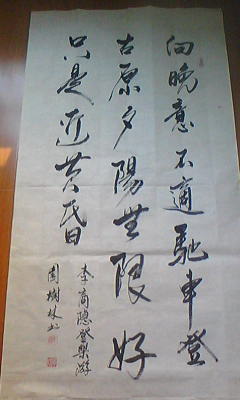 向晚意不適驰車登
古原夕陽無限好
只是近黄昏
李商隐登樂游
周樹林书